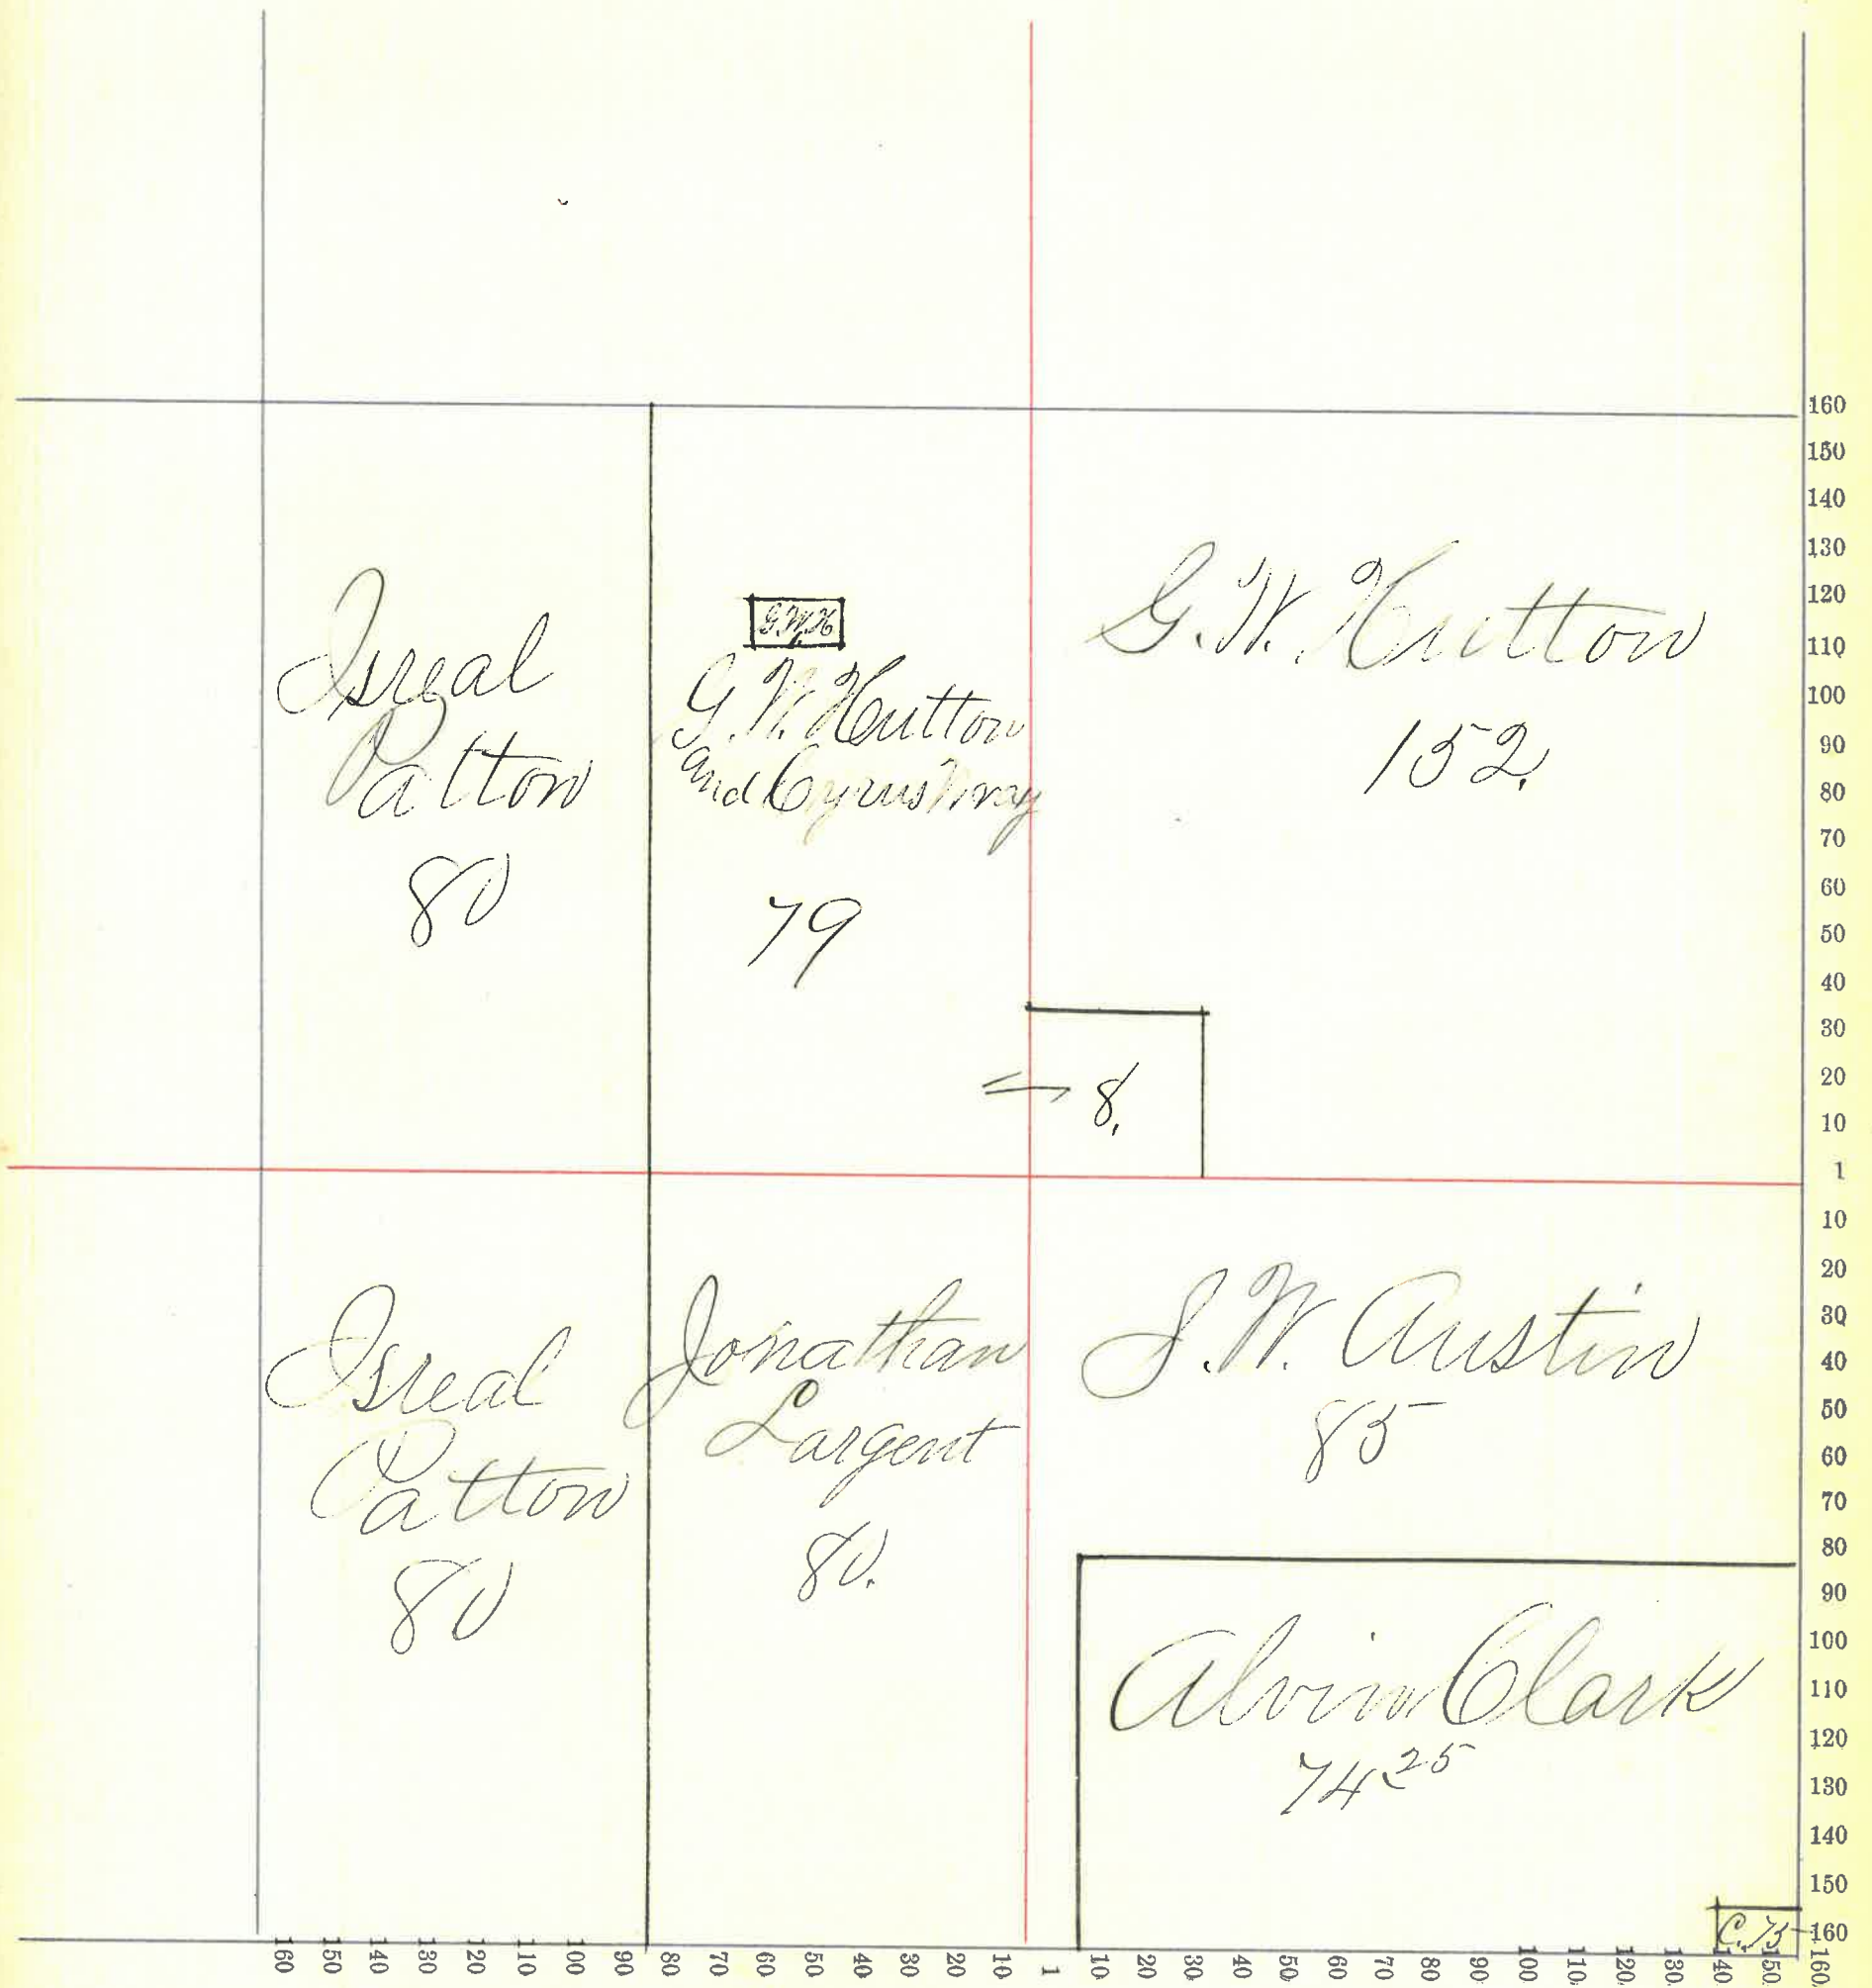 Isreal
Patton
80
G.W.H
G.W. Hutton
and Cyrus Wray
79
G.W. Hutton
152.
8.
Isreal
Patton
80
Jonathan
Largent
80.
S.W. Austin
85
Alvin Clark
74 25
C. .75
160
150
140
130
120
110
100
90
80
70
60
50
40
30
20
10
1
10
20
30
40
50
60
70
80
90
100
110
120
130
140
150
160
160 150 140 130 120 110 100 90 80 70 60 50 40 30 20 10 1 10 20 30 40 50 60 70 80 90 100 110 120 130 140 150 160